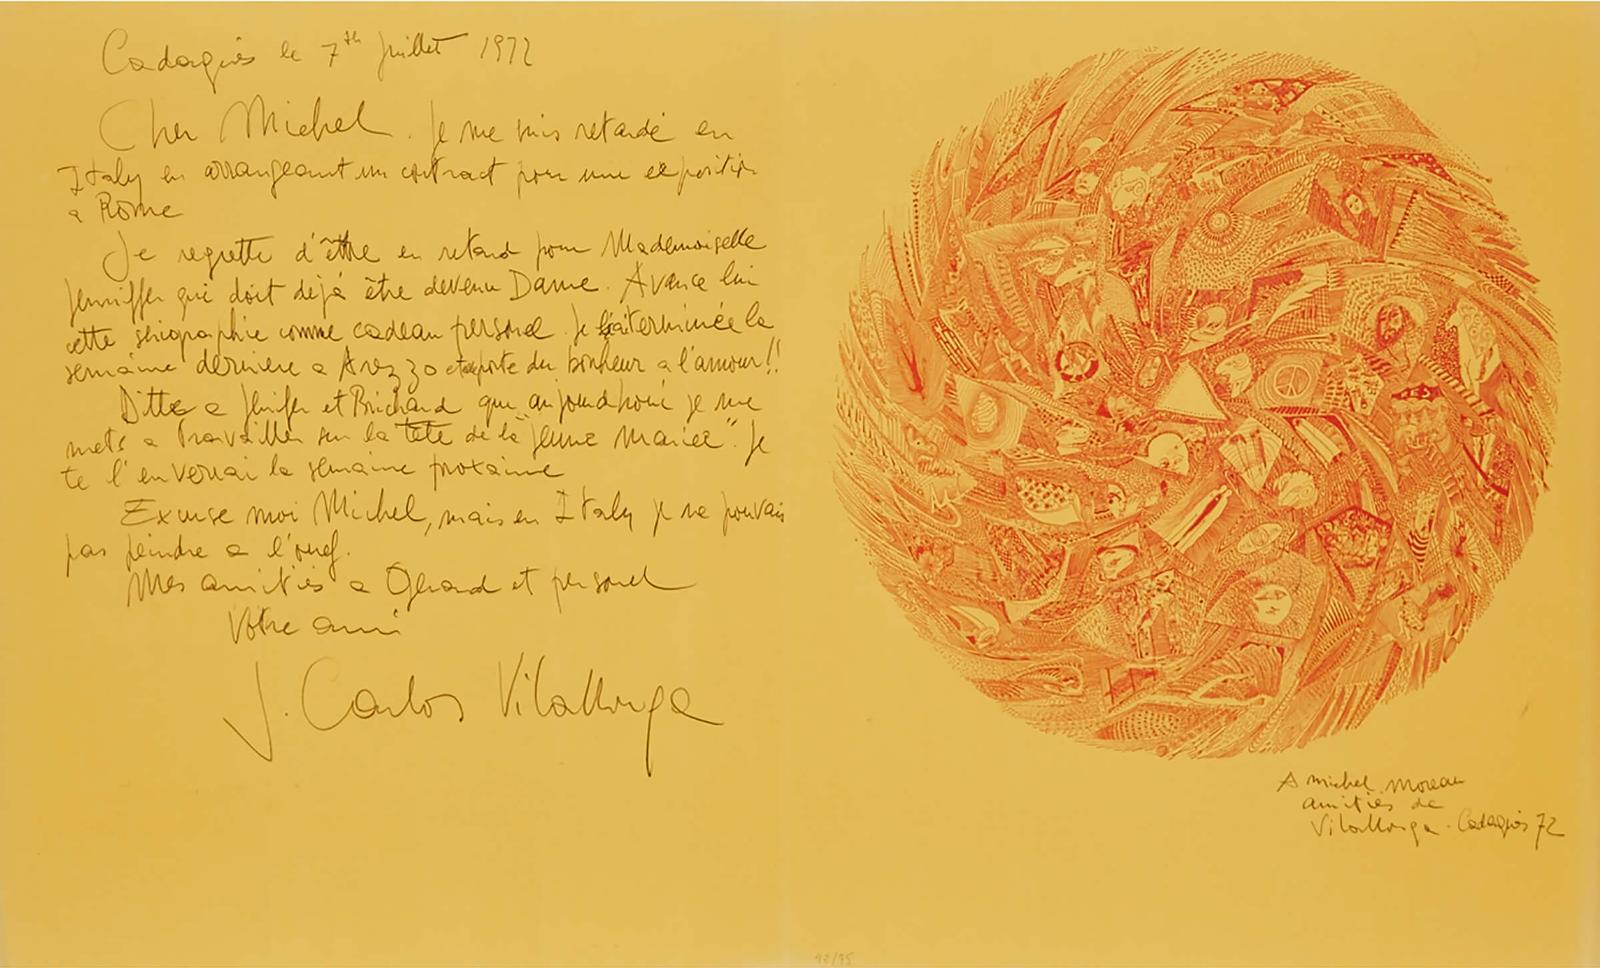 Cadaqués le 7th Juillet 1972
Cher Michel. Je me suis retardé en
Italy en arrangeant un contract pour une exposition
a Rome
Je regrette d'être en retard pour Mademoiselle
Jenniffer qui doit déjà être devenu Dame. Avance lui
cette sérigraphie comme cadeau personel. Je terminée la
semaine dernière a Arezzo et aporte du bonheur a l'amour!!
Dittes a Jenifer et Richard que aujourd'houi je me
mets a travailler sur la tête de la "jeune mariée". Je
te l'enverrai la semaine prochaine
Excuse moi Michel, mais en Italy je ne pouvais
pas peindre a l'oeuf.
Mes amitiés a Gerard et personel
Votre ami
J. Carlos Vilallonga
A michel moreau
amitiés de
Vilallonga - Cadaqués 72
42/75